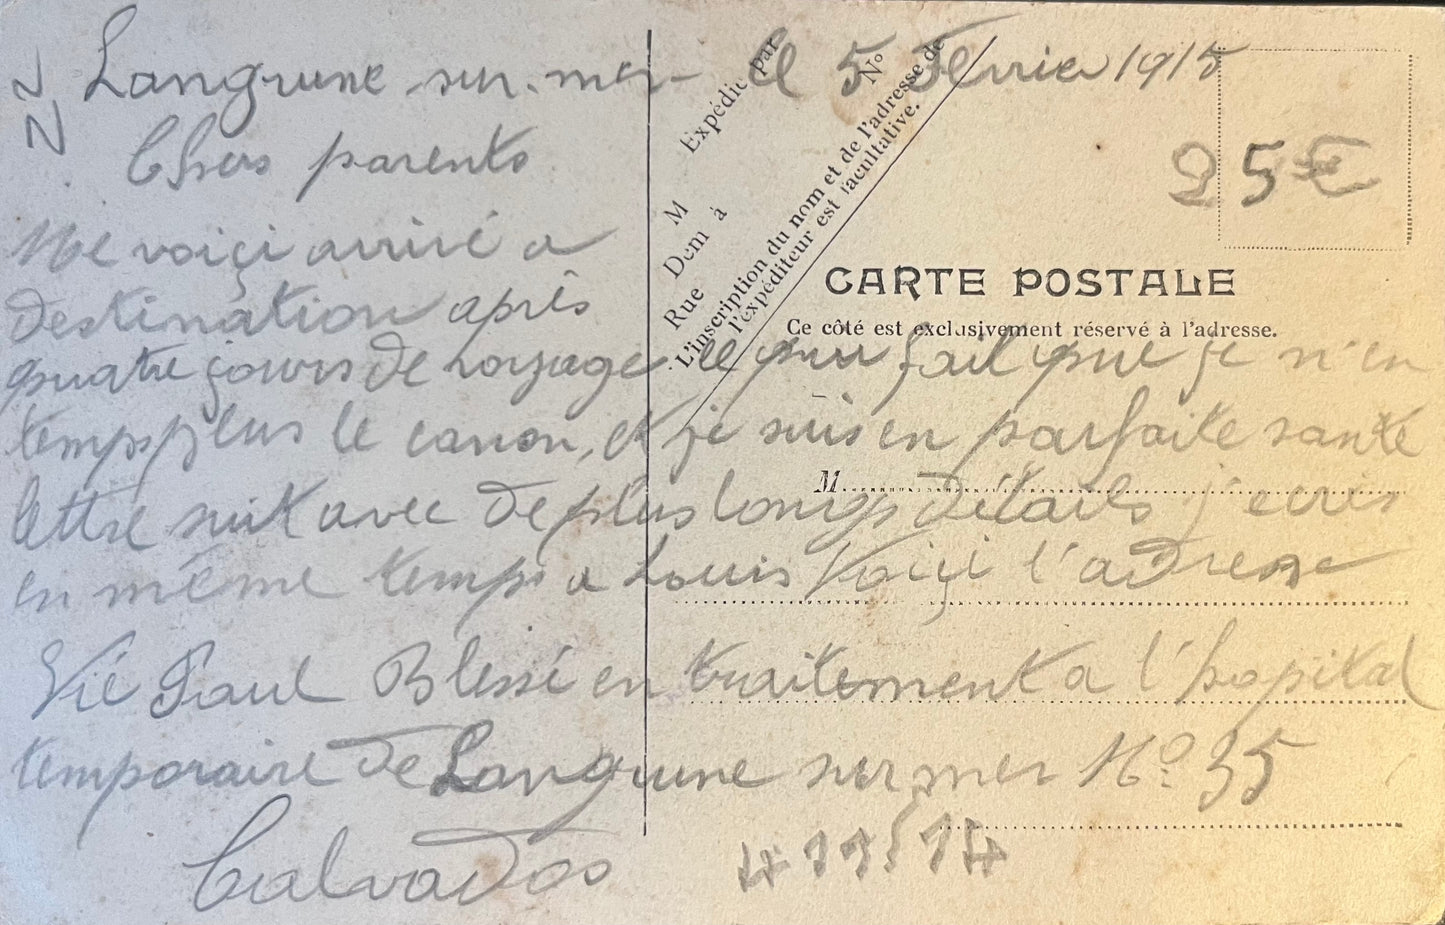 Langrune sur. mer le 5 Fevrier 1915
Chers parents
Me voiçi arrivé a
destination après
quatre jours de voyage ce qui fait que je n'en
temps plus le canon, et je suis en parfaite santé
lettre suit avec de plus longs détails j'ecris
en même temps a Louis Voiçi l'adresse
Vié Paul Blessé en traitement a l'hopital
temporaire de Langrune sur mer No. 35
Calvados
Expédié par
M
Demt à
Rue No
L'inscription du nom et de l'adresse de
l'expéditeur est facultative.
25€
CARTE POSTALE
Ce côté est exclusivement réservé à l'adresse.
M